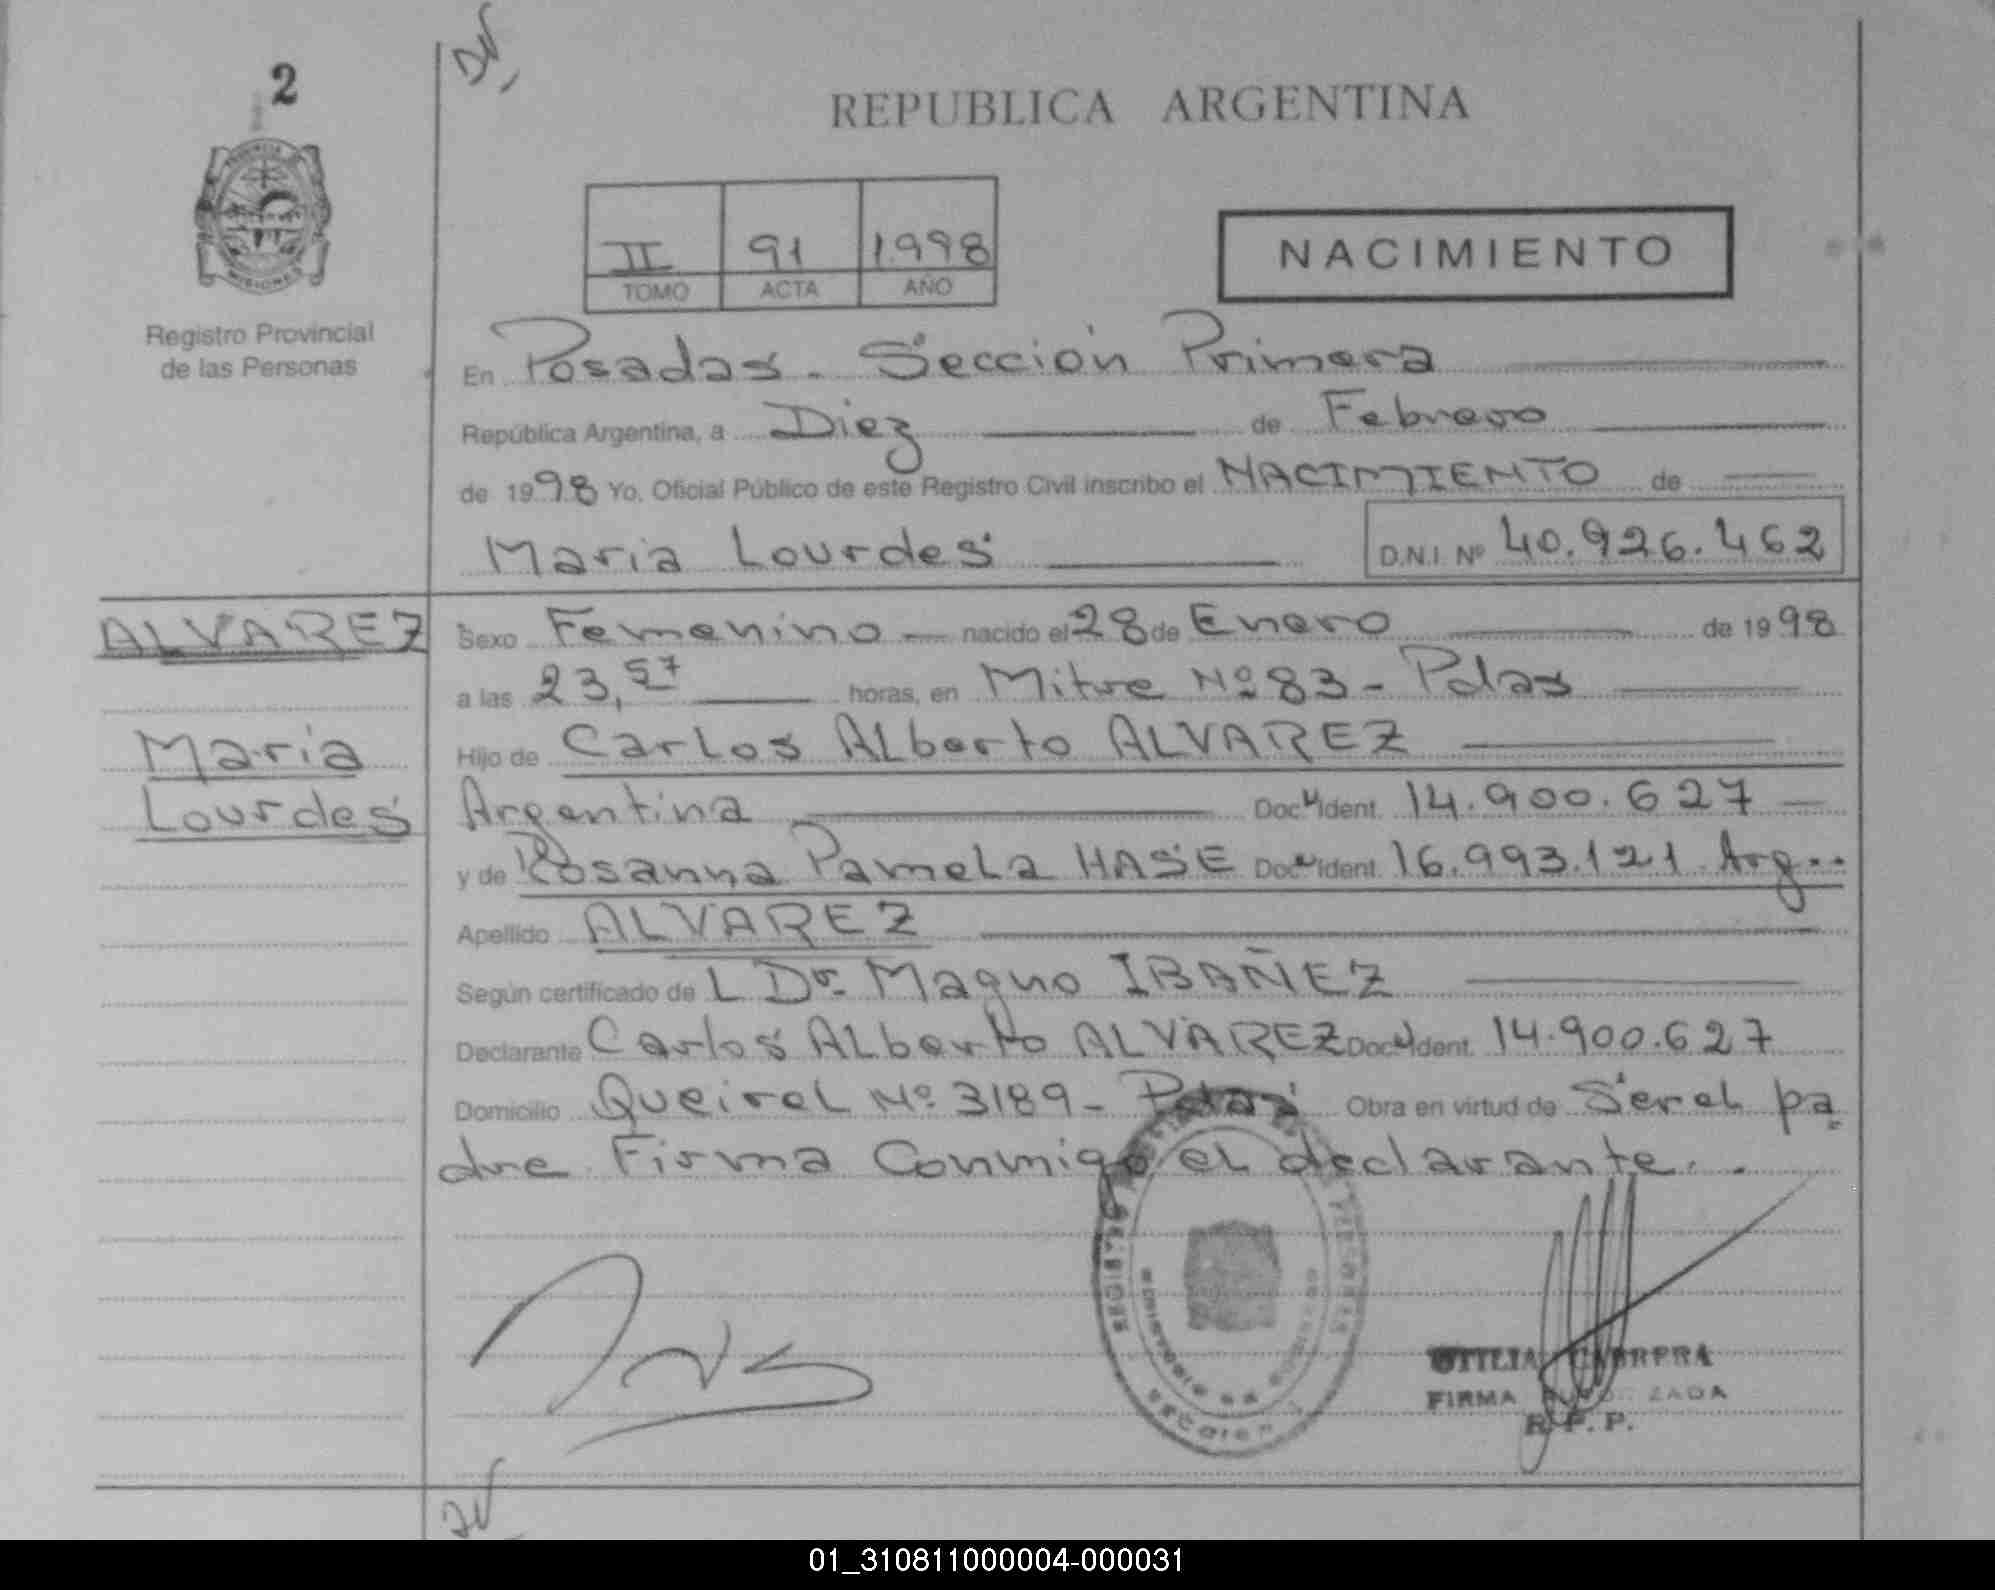 2
REPUBLICA ARGENTINA
II 91 1.998
TOMO ACTA AÑO
NACIMIENTO
Registro Provincial
de las Personas
En Posadas. Sección Primera
República Argentina, a Diez de Febrero
de 1998 Yo, Oficial Público de este Registro Civil inscribo el NACIMIENTO de
Maria Lourdes D.N.I. Nº 40.926.462
ALVAREZ
Maria
Lourdes
Sexo Femenino nacido el 28 de Enero de 1998
a las 23,57 horas, en Mitre Nº 83 - Pdas
Hijo de Carlos Alberto ALVAREZ
Argentina Doc. Ident. 14.900.627
y de Rosanna Pamela HASE Doc. Ident. 16.993.121 Arg..
Apellido ALVAREZ
Según certificado de L Dr. Magno IBAÑEZ
Declarante Carlos Alberto ALVAREZ Doc. Ident. 14.900.627
Domicilio Queirel Nº 3189 - Pdas Obra en virtud de Ser el pa
dre. Firma Conmigo el declarante..
CABRERA
FIRMA
R. P. P.
01_310811000004-000031